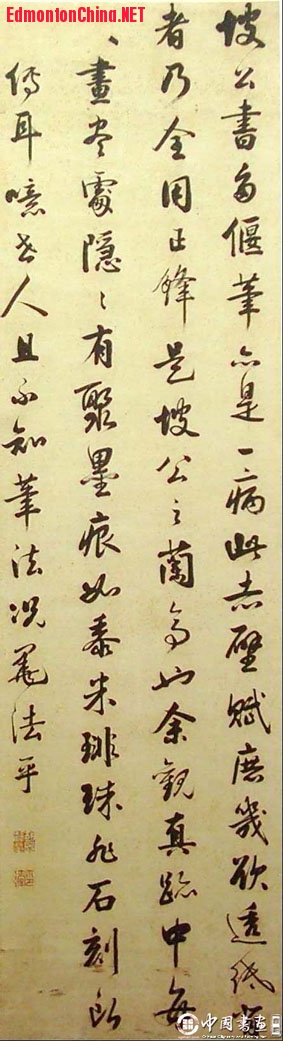 EdmontonChina.NET
坡公書多偃筆亦是一病此赤壁賦庶幾欲透紙背
者乃全用正鋒是坡公之蘭亭也余觀真跡中每
、畫盡處隱〻有聚墨痕如黍米琲珠非石刻所
傳耳噫世人且不知筆法況墨法乎
中國書畫